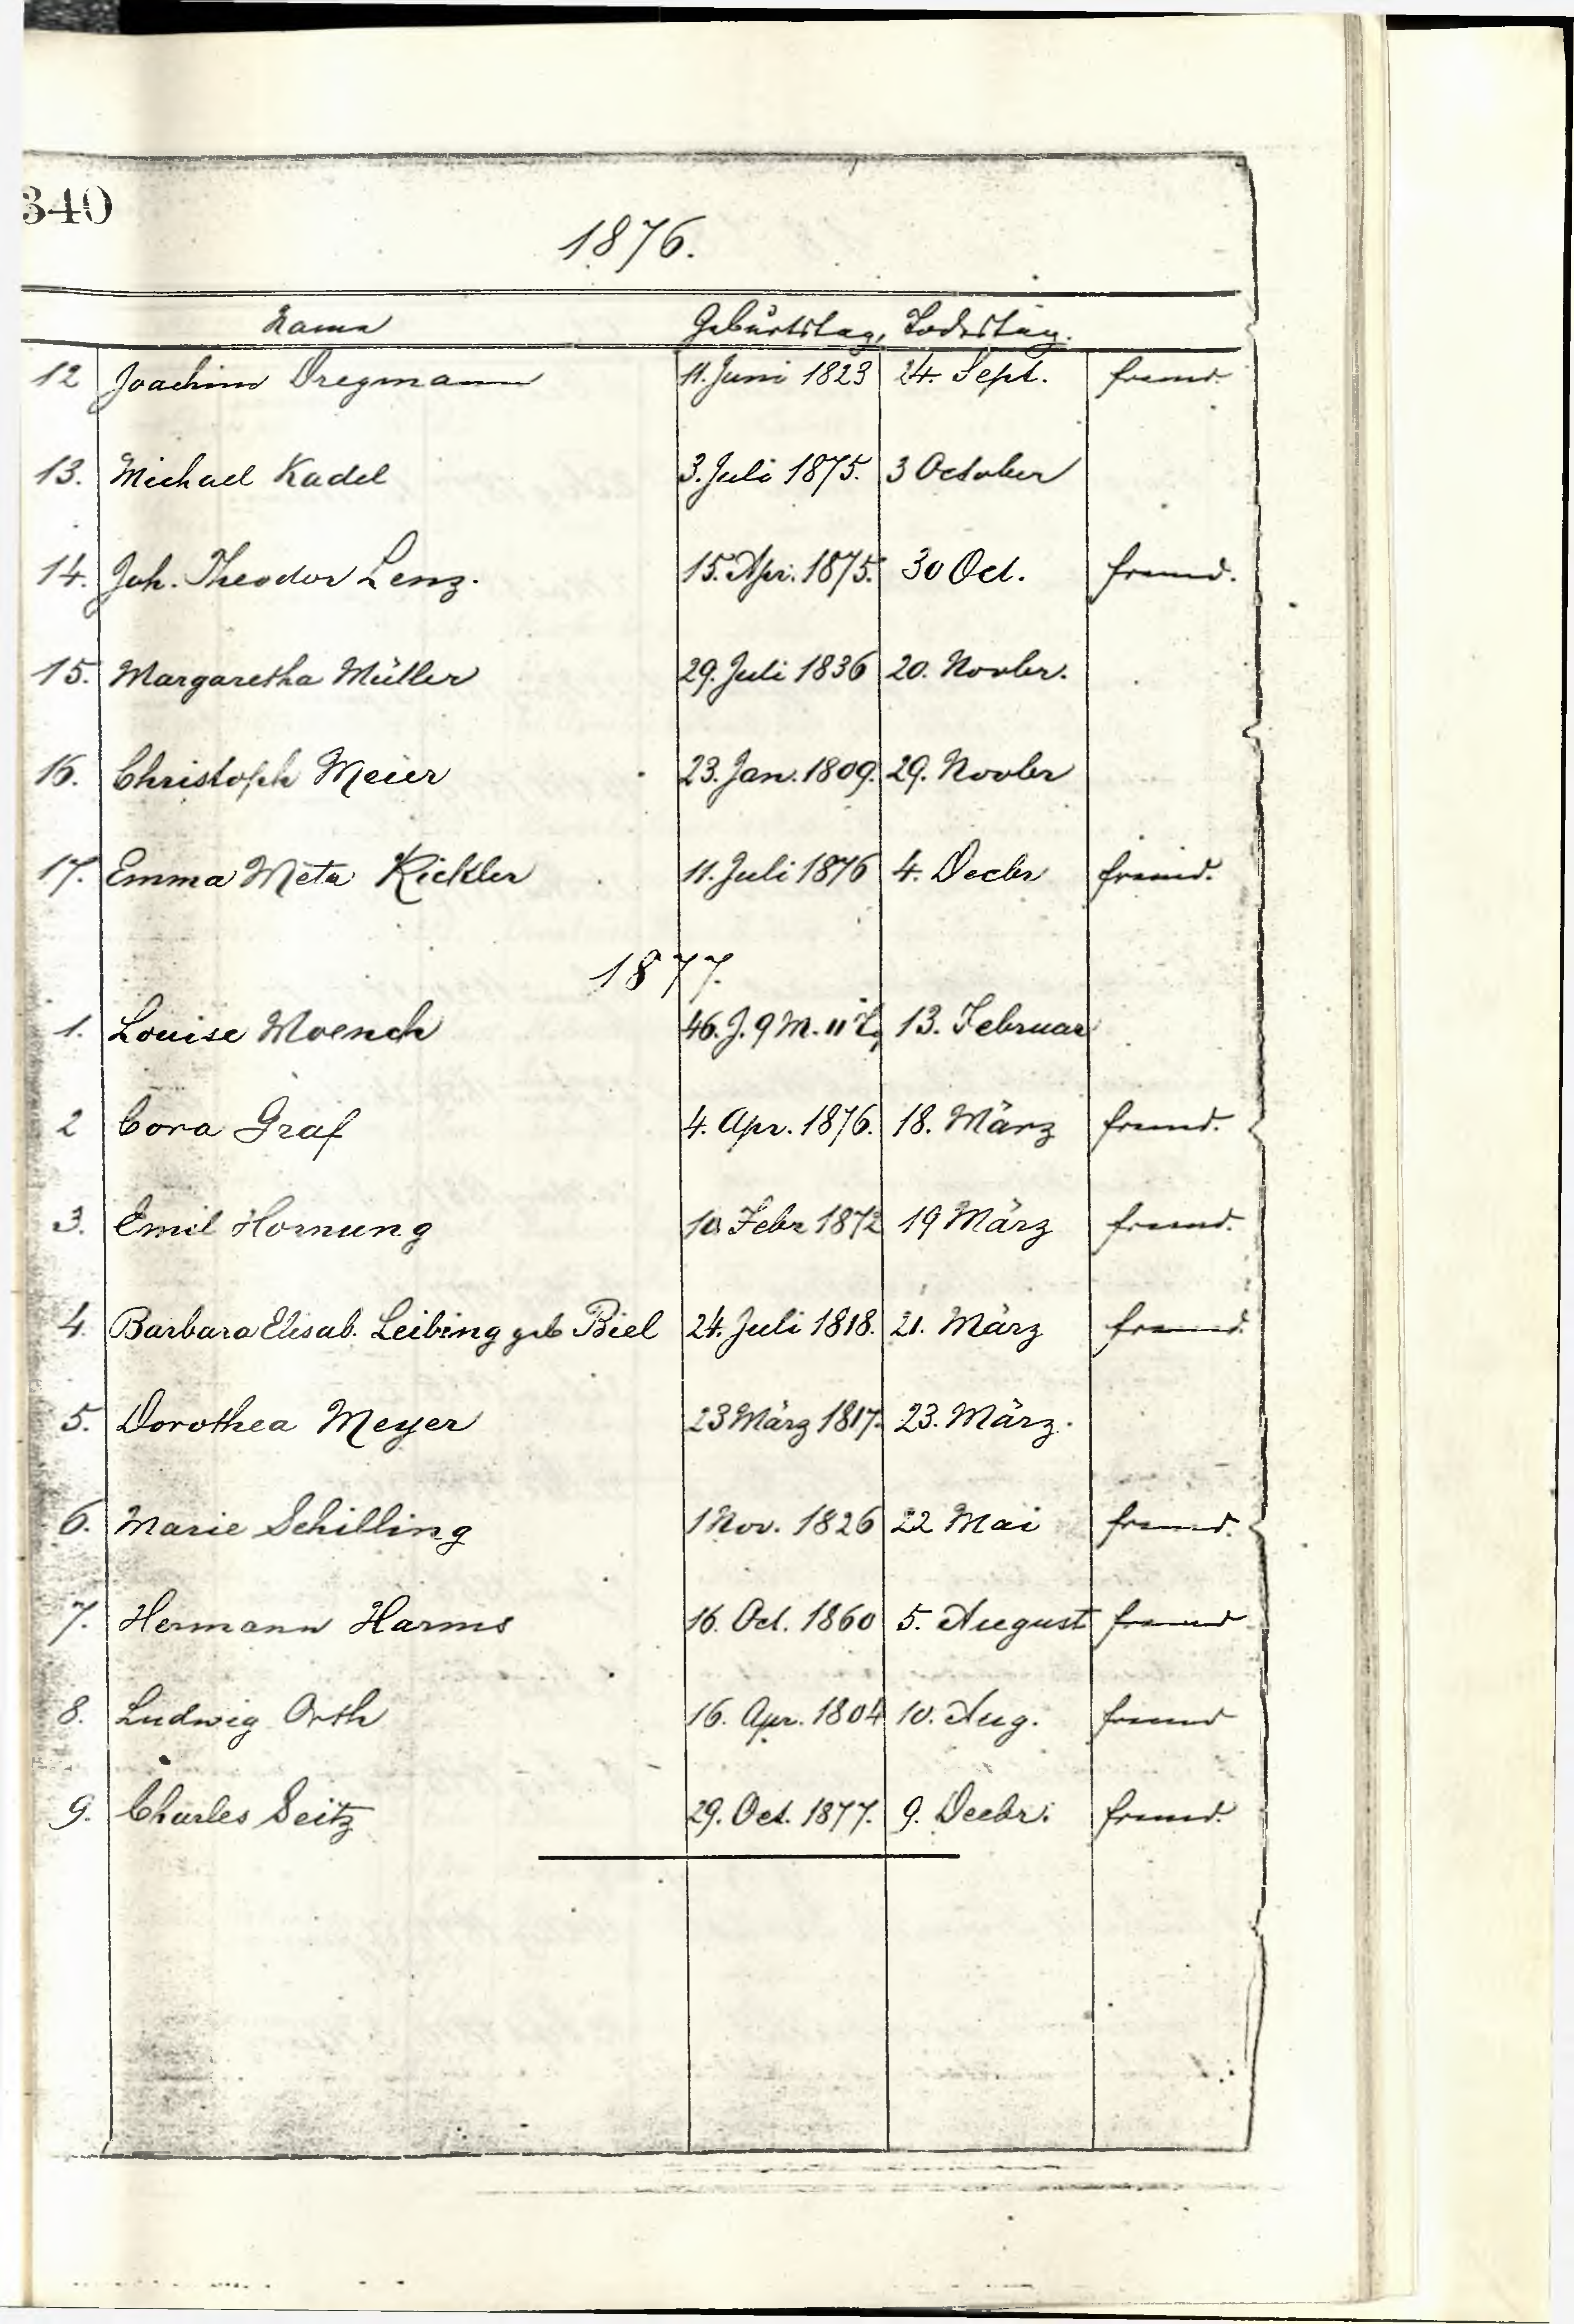 340
1876.
Name Geburtstag, Todestag.
12 Joachim Dregmann 11. Juni 1823 24. Sept. fremd.
13. Michael Kadel 3. Juli 1875. 3 October
14. Joh. Theodor Lenz. 15. Apr. 1875. 30 Oct. fremd.
15. Margaretha Müller 29. Juli 1836 20. Novbr.
16. Christoph Meier 23. Jan. 1809. 29. Novbr
17. Emma Meta Rickler 11. Juli 1876 4. Decbr fremd.
1877.
1. Louise Moench 46. J. 9 M. 11 T. 13. Februar
2 Cora Graf 4. Apr. 1876. 18. März fremd.
3. Emil Hornung Febr 1872 19 März fremd.
4. Barbara Elisab. Leibing geb Biel 24. Juli 1818. 21. März fremd.
5. Dorothea Meyer 23 März 1817. 23. März.
6. Marie Schilling 1 Nov. 1826 22 Mai fremd.
7. Hermann Harms 16. Oct. 1860 5. August fremd
8. Ludwig Orth 16. Apr. 1804 10. Aug. fremd
9. Charles Seitz 29. Oct. 1877. 9. Decbr. fremd.